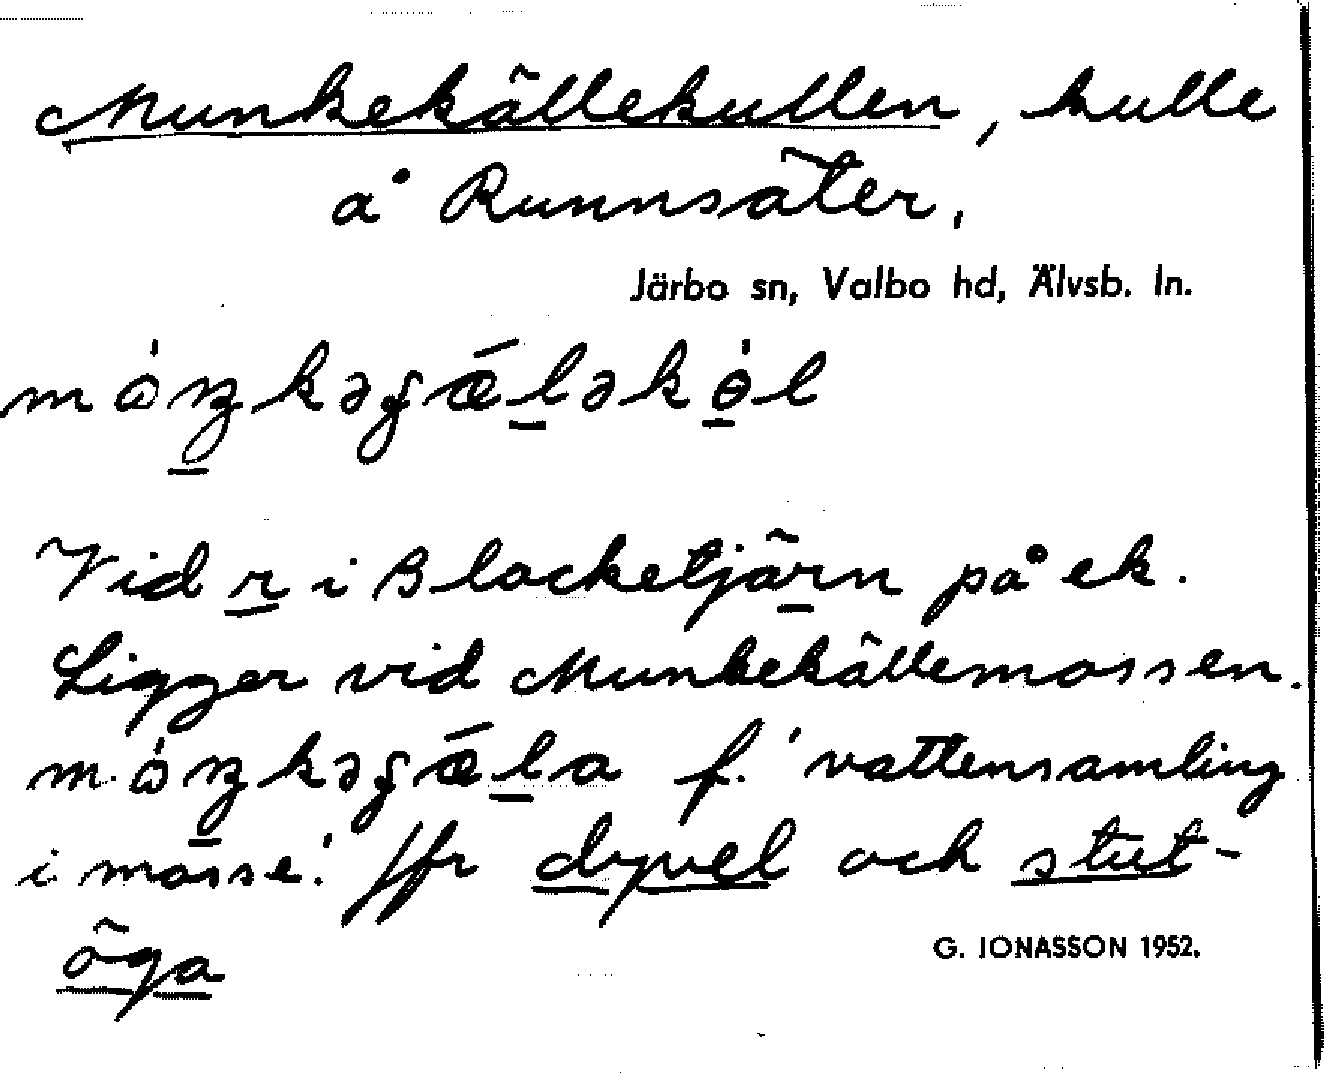 Munkekällekullen, kulle
å Runnsäter,
Järbo sn, Valbo hd, Älvsb. ln.
Vid r i Blocketjärn på ek.
Ligger vid Munkekällemossen.
f. 'vattensamling
i mosse'. Jfr dyvel och stut-
öga
G. JONASSON 1952.